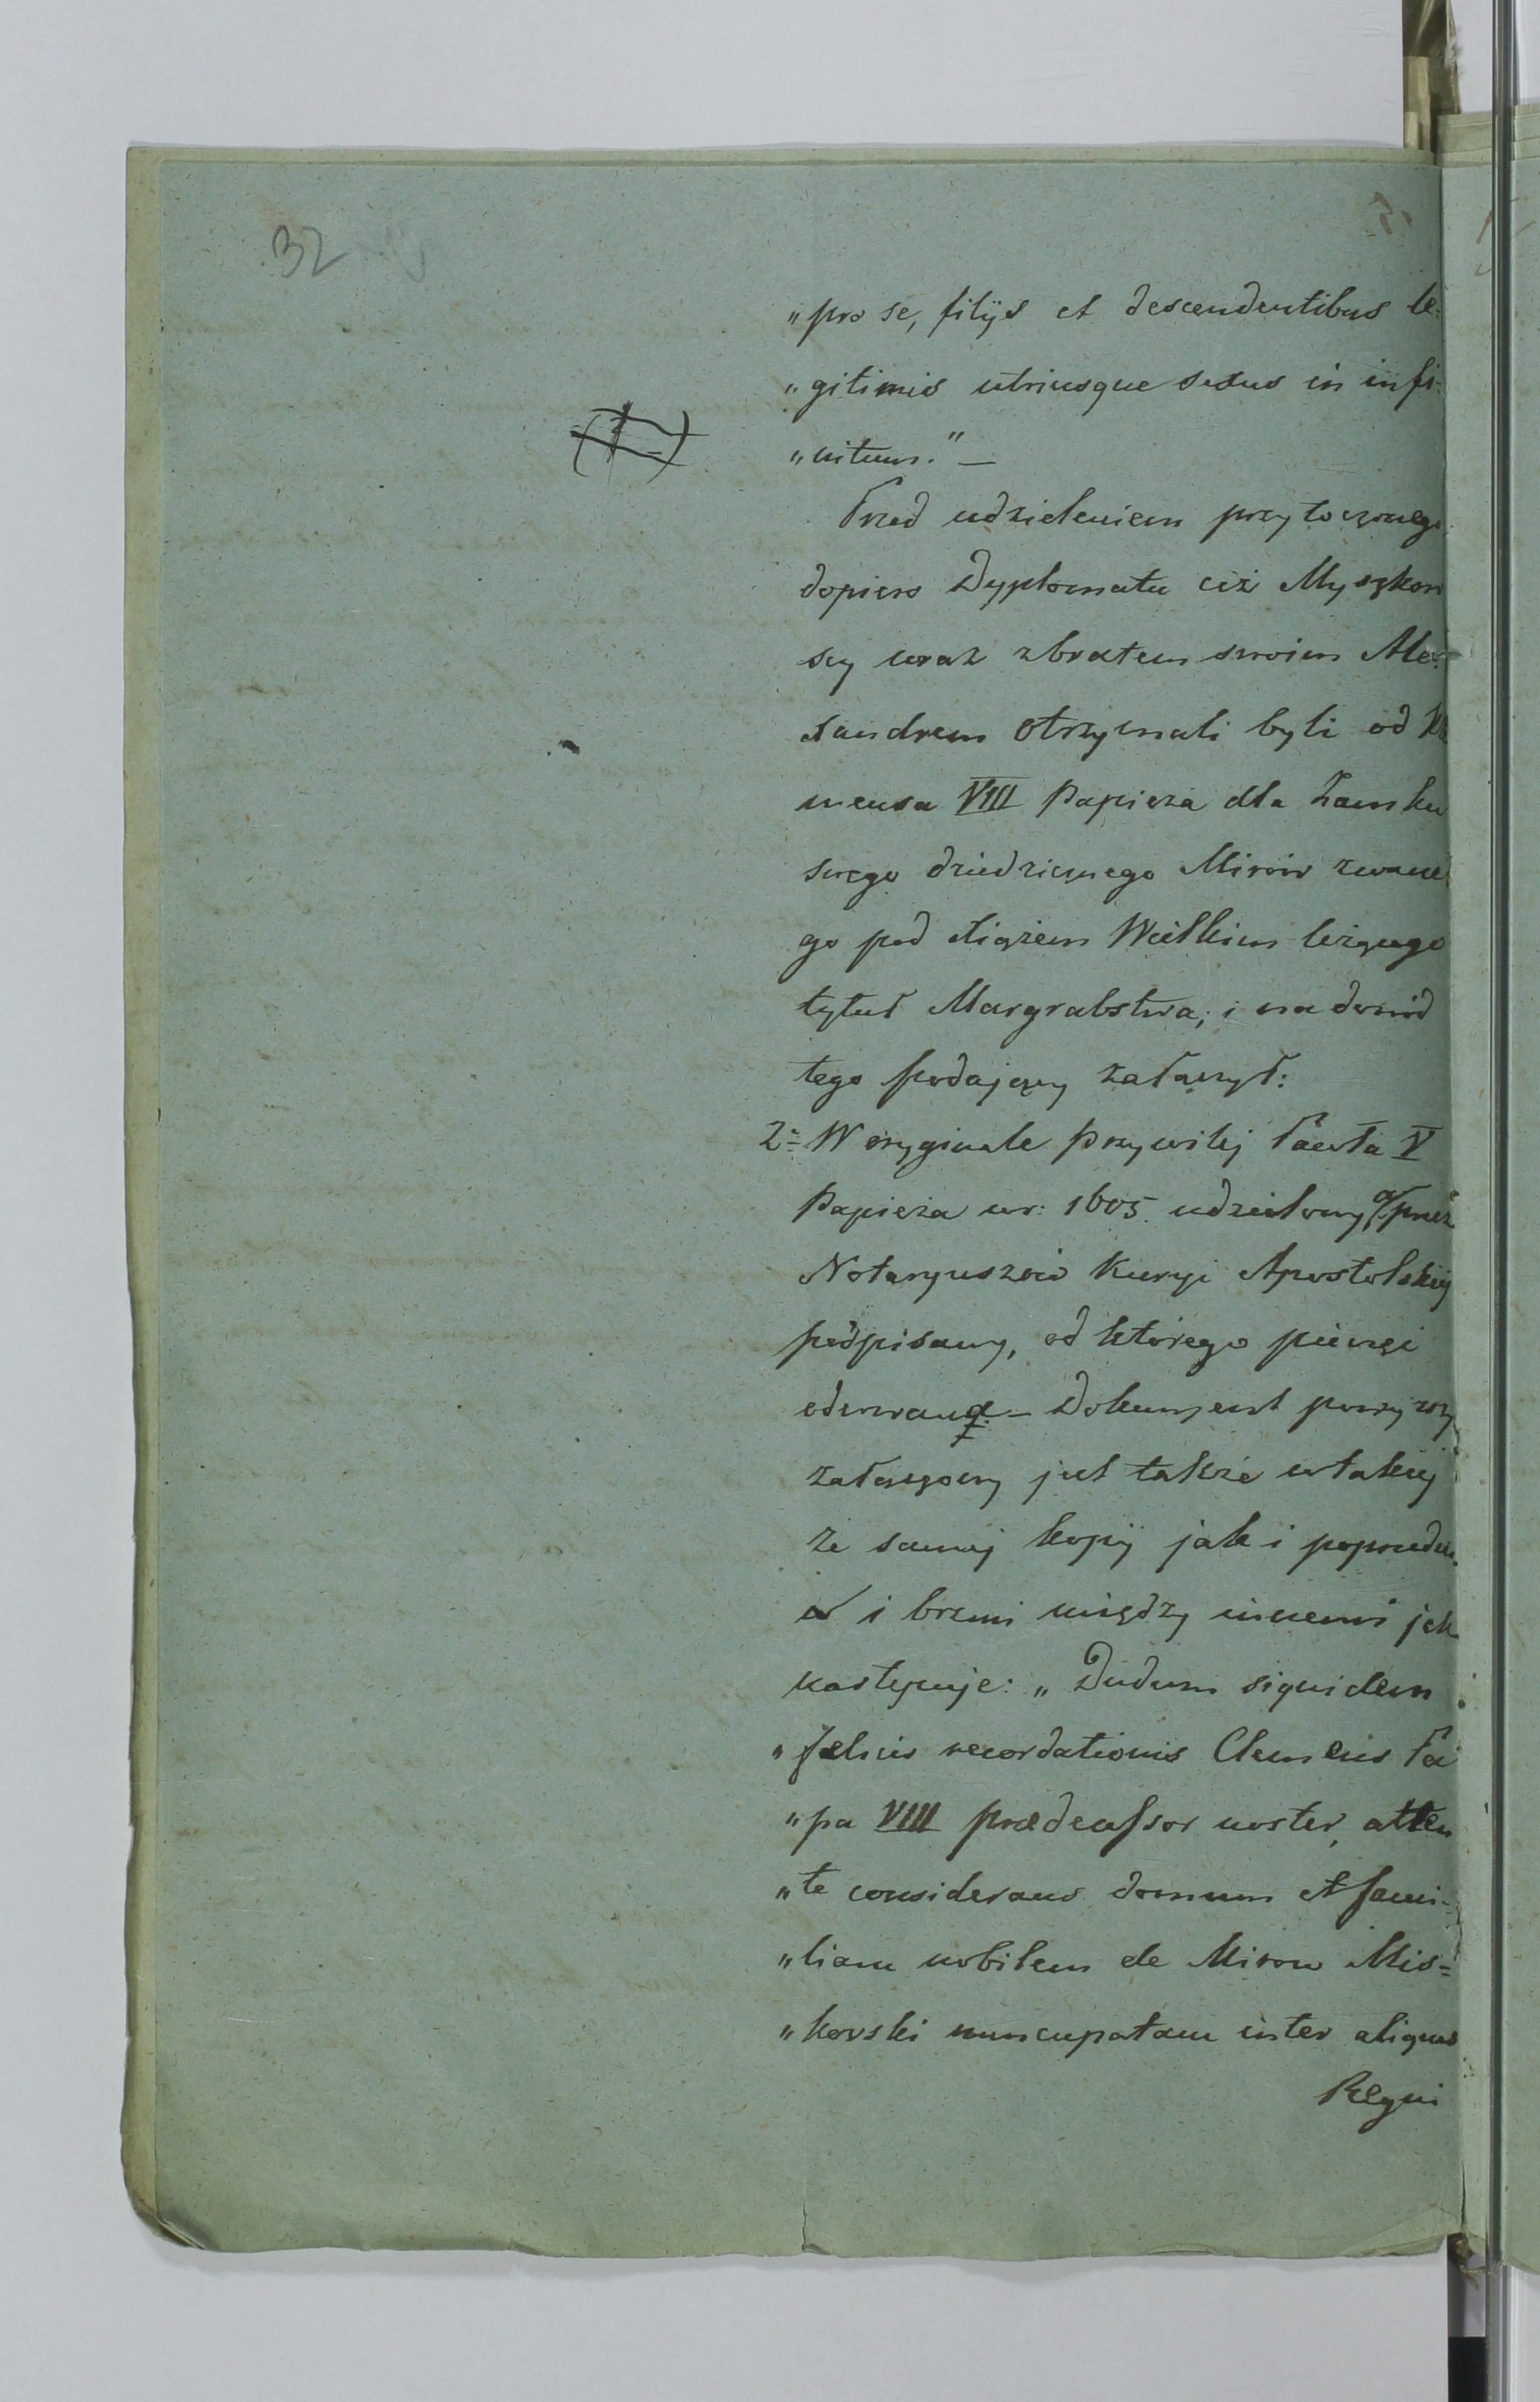 32
„pro se, filijs et descendentibus le=
„gitimis utriusque sexus in infi=
„nitum.” —
Przed udzieleniem przytoczonego
dopiero Dyplomatu ciż Myszkow
scy wraz z bratem swoim Ale=
xandrem otrzymali byli od Kle
mensa VIII Papieża dla Zamku
swego dziedzicznego Mirów zwane
go pod Xiążem Wielkim leżącego
tytuł Margrabstwa; i na dowód
tego podający załączył:
2= W oryginale przywilej Pawła V
Papieża w r: 1605. udzielony, przez
Notaryuszów Kuryi Apostolskiej
podpisany, od którego pieczęć
oderwana — Dokument powyższy
załączony jest także w takiej
że samej kopij jak i poprzedni
i brzmi między innemi jak
następuje: „Dudum siquidem
„felicis recordationis Clemens Pa
„pa VIII prædecessor noster, atten
„te considerans domum et fami=
„liam nobilem de Mirow Mis=
„kovski nuncupatam inter aliquas
Regni